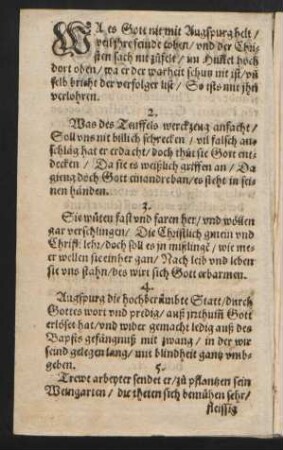 WA es Gott nit mit Augspurg helt /
weil jhre feinde toben / vnd der Chri-
sten sach nit zůfelt / im Himel hoch
dort oben / wa er der warheit schutz nit ist / vñ
selb bricht der verfolger list / So ists mit jhr
verlohren.
2.
Was des Teuffels werckzeug anfacht /
Soll vns nit billich schrecken / vil falsch an-
schläg hat er erdacht / doch thůt sie Gott ent-
decken / Da sie es weißlich griffen an / Da
gieng doch Gott ein andre ban / es steht in sei-
nen händen.
3.
Sie wüten fast vnd faren her / vnd wöllen
gar verschlingen / Die Christlich gmein vnd
Christi lehr / doch soll es jn mißlingẽ / wie me-
er wellen sie einher gan / Nach leib vnd leben
sie vns stahn / des wirt sich Gott erbarmen.
4.
Augspurg die hochberümbte Statt / durch
Gottes wort vnd predig / auß jrrthum̃ Gott
erlöset hat / vnd wider gemacht ledig auß des
Bapsts gefängnuß mit zwang / in der wir
seind gelegen lang / mit blindheit gantz vmb-
geben.
5.
Trewe arbeyter sendet er / zů pflantzen sein
Weingarten / die theten sich bemühen sehr /
fleissig